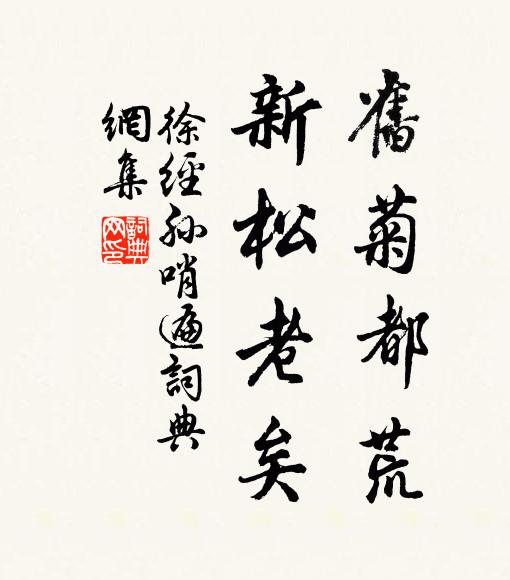 舊菊都荒
新松老矣
徐經孫哨遍詞典
網集
詞典網印